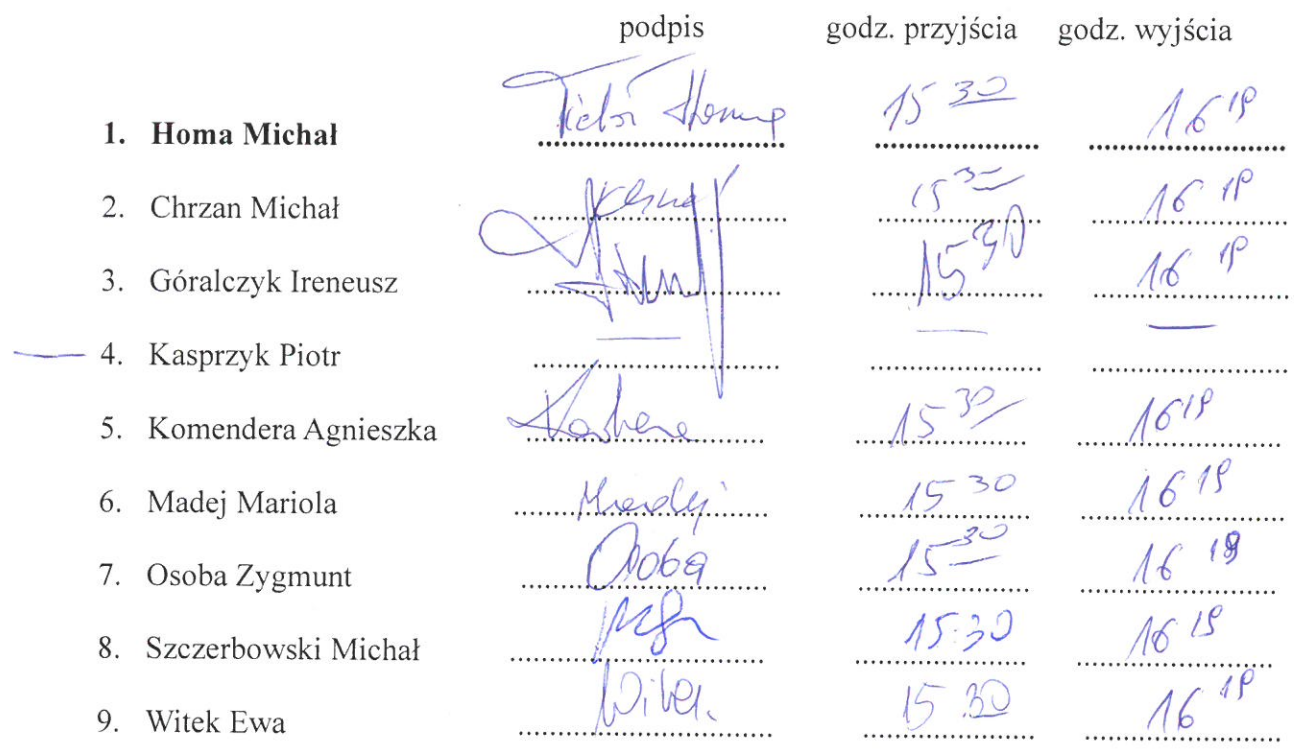 podpis godz. przyjścia godz. wyjścia
1. Homa Michał 15 30 16 19
2. Chrzan Michał 15 30 16 19
3. Góralczyk Ireneusz 15 30 16 19
4. Kasprzyk Piotr — — —
5. Komendera Agnieszka 15 30 16 19
6. Madej Mariola Madej 15 30 16 19
7. Osoba Zygmunt Osoba 15 30 16 19
8. Szczerbowski Michał 15:30 16 19
9. Witek Ewa Witek 15 30 16 19